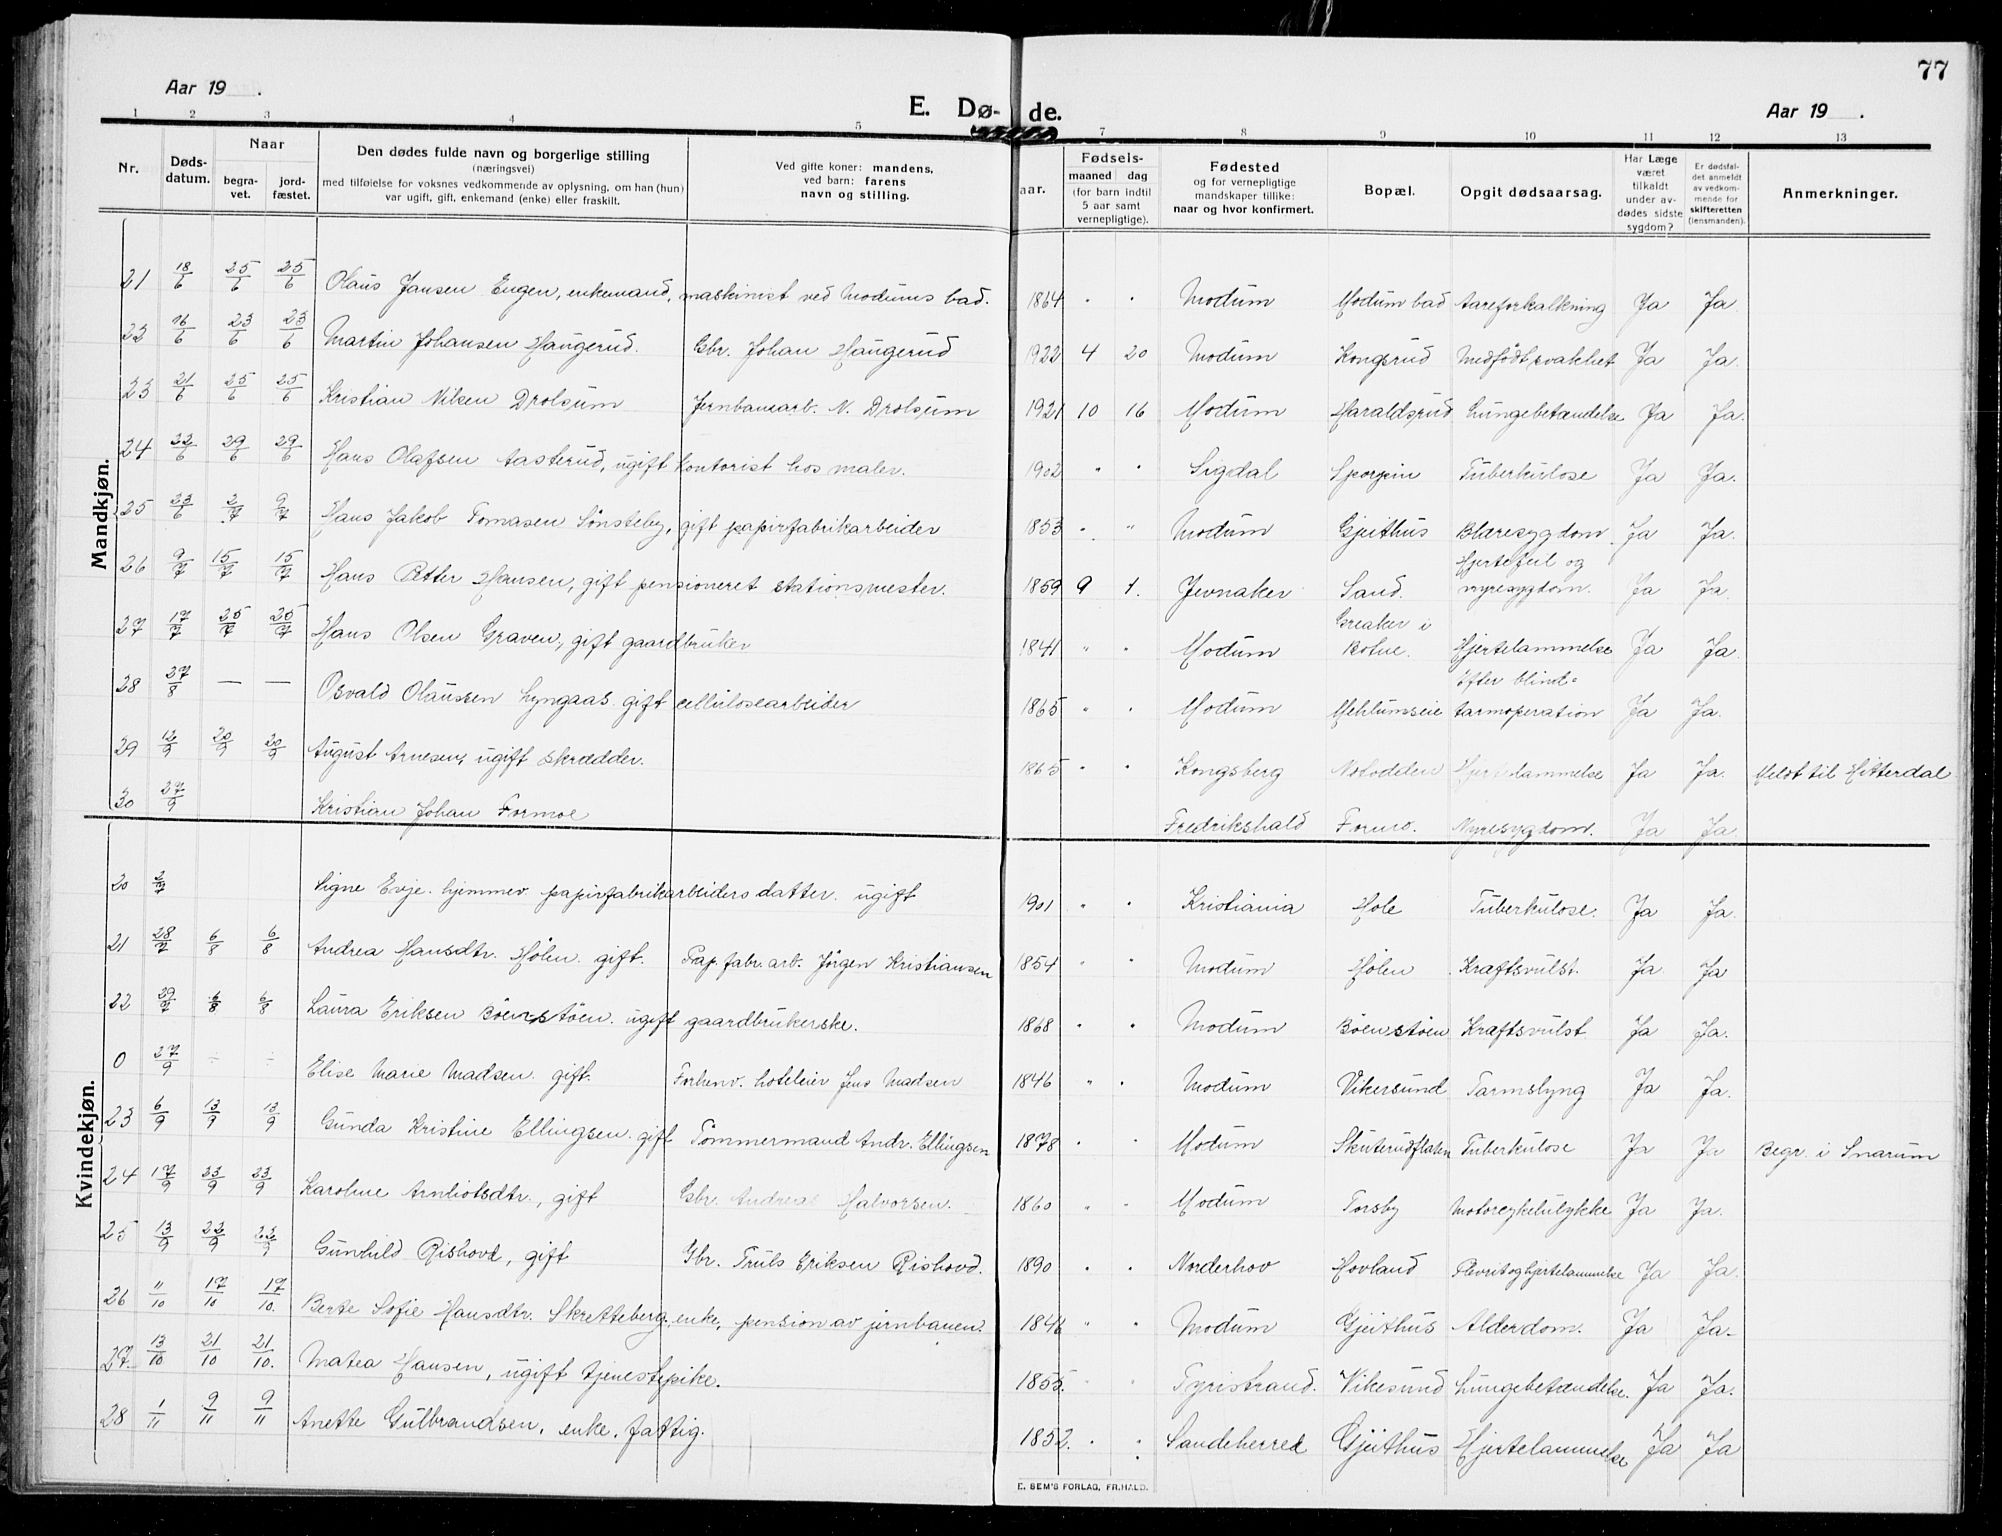 77
Aar 19 .
E. Dø- de.
Aar 19 .
1 2 3 4 5 7 8 9 10 11 12 13
Nr.
Døds-
datum.
Naar
begra-
vet.
jord-
fæstet.
Den dødes fulde navn og borgerlige stilling
(næringsvei)
med tilføielse for voksnes vedkommende av oplysning, om han (hun)
var ugift, gift, enkemand (enke) eller fraskilt.
Ved gifte koner: mandens,
ved barn: farens
navn og stilling.
aar.
Fødsels-
maaned dag
(for barn indtil
5 aar samt
vernepligtige).
Fødested
og for vernepligtige
mandskaper tillike:
naar og hvor konfirmert.
Bopæl.
Opgit dødsaarsag.
Har Læge
været
tilkaldt
under av-
dødes sidste
sygdom?
Er dødsfal-
det anmeldt
av vedkom-
mende for
skifteretten
(lensmanden).
Anmerkninger.
Mandkjøn.
21 18/6 25/6 25/6 Olaus Jansen Engen, enkemand, maskinist ved Modums bad. 1864 " " Modum Modum bad Aareforkalkning Ja Ja.
22 16/6 23/6 23/6 Martin Johansen Haugerud. Gbr. Johan Haugerud 1922 4 20 Modum Kongsrud Medfødt svakhet Ja Ja.
23 21/6 25/6 25/6 Kristian Nilsen Drolsum Jernbanearb. N. Drolsum 1921 10 16 Modum Haraldsrud Lungebetændelse Ja Ja.
24 22/6 29/6 29/6 Hans Olafsen Aasterud, ugift kontorist hos maler. 1902 " " Sigdal Sporpin Tuberkulose Ja Ja.
25 23/6 2/7 9/7 Hans Jakob Tomasen Sønsteby, gift papirfabrikarbeider 1853 " " Modum Gjeithus Blæresygdom. Ja Ja.
26 9/7 15/7 15/7 Hans Petter Hansen, gift pensioneret stationsmester. 1859 9 1. Jevnaker Sand. Hjertefeil og
nyresygdom. Ja Ja.
27 17/7 25/7 25/7 Hans Olsen Graven, gift gaardbruker 1841 " " Modum Greaker i
Botne. Hjertelammelse Ja Ja.
28 27/8 — — Osvald Olaussen Lyngaas gift cellulosearbeider 1865 " " Modum Mehlumseie Efter blind-
tarmoperation Ja Ja.
29 12/9 20/9 20/9 August Arnesen, ugift skrædder. 1865 " " Kongsberg Notodden Hjertelammelse Ja Ja. Meldt til Hitterdal
30 27/9 Kristian Johan Formoe Fredrikshald Formo. Nyresygdom. Ja Ja.
Kvindekjøn.
20 2/7 Signe Evje. hjemmev papirfabrikarbeiders datter. ugift 1901 " " Kristiania Hole Tuberkulose. Ja Ja.
21 28/7 6/8 6/8 Andrea Hansdtr. Hølen. gift. Pap.fabr.arb. Jørgen Kristiansen 1854 " " Modum Hølen Kræftsvulst. Ja Ja
22 29/7 6/8 6/8 Laura Eriksen Bøenstøen. ugift gaardbrukerske. 1868 " " Modum Bøenstøen Kræftsvulst Ja Ja.
0 27/9 ÷ ÷ Elise Marie Madsen. gift. Forhenv. hoteleier Jens Madsen 1846 " " Modum Vikersund Tarmslyng Ja Ja.
23 6/9 13/9 13/9 Gunda Kristine Ellingsen. gift Tømmermand Andr. Ellingsen 1878 " " Modum Skuterudflaten Tuberkulose Ja Ja Begr. i Snarum
24 17/9 23/9 23/9 Karoline Arnliotsdtr., gift Gbr. Andreas Halvorsen. 1860 " " Modum Torsby Motorcykelulykke Ja Ja.
25 13/9 22/9 22/9 Gunhild Rishovd, gift Gbr. Truls Eriksen Rishovd. 1890 " " Norderhov Hovland Plevrit og hjertelammelse Ja Ja.
26 11/10 17/10 17/10. Berte Sofie Hansdtr. Skretteberg, enke, pension av jernbanen. 1846 " " Modum Gjeithus Alderdom. Ja Ja.
27. 13/10 21/10 21/10. Matea Hansen, ugift tjenestepike. 1855. " " Tyristrand. Vikesund Lungebetændelse. Ja Ja.
28 1/11 9/11 9/11 Anette Gulbrandsen, enke, fattig. 1852. " " Sandeherred Gjeithus Hjertelammelse Ja Ja
E. SEM'S FORLAG, FR.HALD.